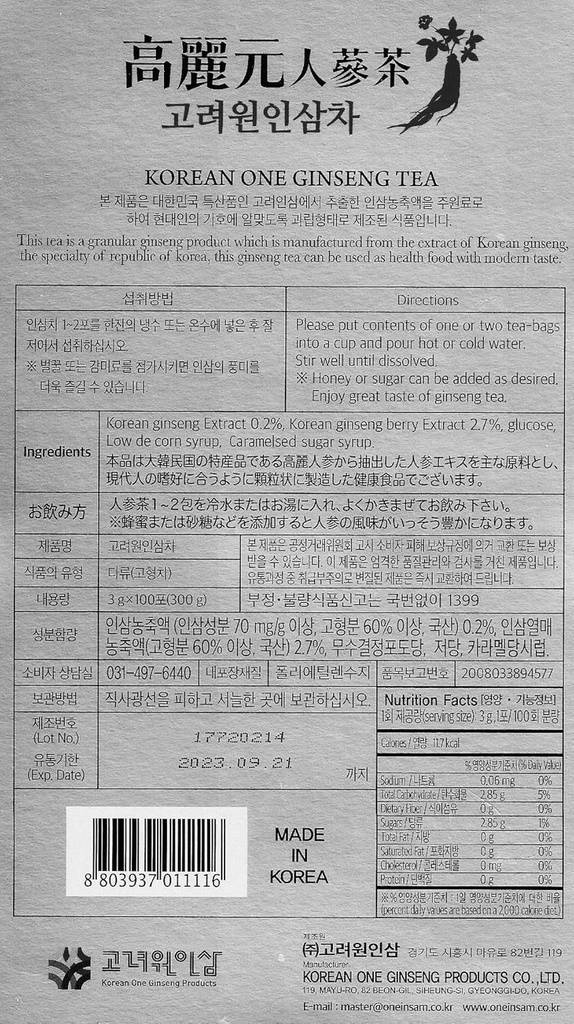 高麗元人蔘茶
고려원인삼차
KOREAN ONE GINSENG TEA
본 제품은 대한민국 특산품인 고려인삼에서 추출한 인삼농축액을 주원료로
하여 현대인의 기호에 알맞도록 과립형태로 제조된 식품입니다.
This tea is a granular ginseng product which is manufactured from the extract of Korean ginseng,
the specialty of republic of korea, this ginseng tea can be used as health food with modern taste.
섭취방법
인삼차 1~2포를 한잔의 냉수 또는 온수에 넣은 후 잘
저어서 섭취하십시오.
※ 벌꿀 또는 감미료를 첨가시키면 인삼의 풍미를
더욱 즐길 수 있습니다.
Directions
Please put contents of one or two tea-bags
into a cup and pour hot or cold water.
Stir well until dissolved.
※ Honey or sugar can be added as desired.
Enjoy great taste of ginseng tea.
Ingredients
Korean ginseng Extract 0.2%, Korean ginseng berry Extract 2.7%, glucose,
Low de corn syrup, Caramelsed sugar syrup.
本品は大韓民国の特産品である高麗人参から抽出した人参エキスを主な原料とし、
現代人の嗜好に合うように顆粒状に製造した健康食品でございます。
お飲み方
人参茶1~2包を冷水またはお湯に入れ、よくかきまぜてお飲み下さい。
※蜂蜜または砂糖などを添加すると人参の風味がいっそう豊かになります。
제품명 고려원인삼차
식품의 유형 다류(고형차)
내용량 3 g×100포(300 g)
본 제품은 공정거래위원회 고시 소비자 피해 보상규정에 의거 교환 또는 보상
받을 수 있습니다. 이 제품은 엄격한 품질관리와 검사를 거친 제품입니다.
유통과정 중 취급부주의로 변질된 제품은 즉시 교환하여 드립니다.
부정·불량식품신고는 국번없이 1399
성분함량
인삼농축액 (인삼성분 70 mg/g 이상, 고형분 60% 이상, 국산) 0.2%, 인삼열매
농축액(고형분 60% 이상, 국산) 2.7%, 무수결정포도당, 저당, 카라멜당시럽.
소비자 상담실 031-497-6440 내포장재질 폴리에틸렌수지 품목보고번호 2008033894577
보관방법 직사광선을 피하고 서늘한 곳에 보관하십시오.
제조번호
(Lot No.)
17720214
유통기한
(Exp. Date)
2023.09.21 까지
Nutrition Facts [영양·기능정보]
1회 제공량(serving size): 3 g,1포/100회 분량
Calories / 열량 11.7 kcal
%영양성분기준치 (% Daily Value)
Sodium / 나트륨 0.06 mg 0%
Total Carbohydrate / 탄수화물 2.85 g 5%
Dietary Fiber / 식이섬유 0 g 0%
Sugars / 당류 2.85 g 1%
Total Fat / 지방 0 g 0%
Saturated Fat / 포화지방 0 g 0%
Cholesterol / 콜레스테롤 0 mg 0%
Protein / 단백질 0 g 0%
※%영양성분기준치 : 1일 영양성분기준치에 대한 비율
(percent daily values are based on a 2,000 calorie diet.)
8 803937 011116
MADE
IN
KOREA
고려원인삼
Korean One Ginseng Products
제조원
(주)고려원인삼 경기도 시흥시 마유로 82번길 119
Manufacturer
KOREAN ONE GINSENG PRODUCTS CO.,LTD.
119, MAYU-RO, 82 BEON-GIL, SIHEUNG-SI, GYEONGGI-DO, KOREA
E-mail : master@oneinsam.co.kr www.oneinsam.co.kr